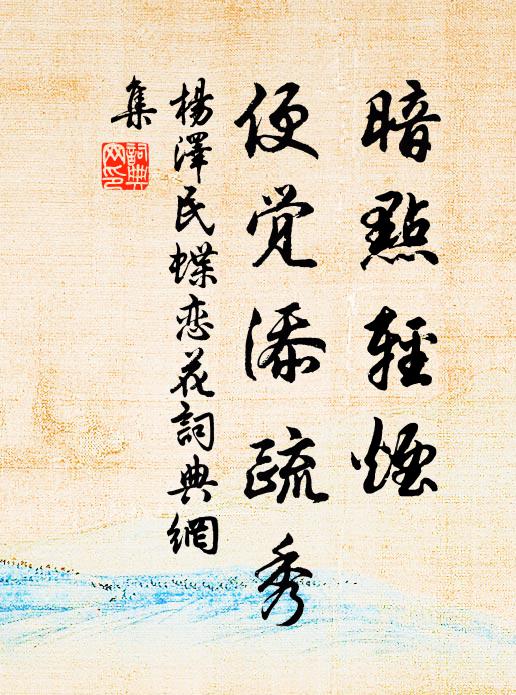 暗點輕煙
便觉添疏秀
楊澤民蝶恋花詞典網
集
詞典
网印